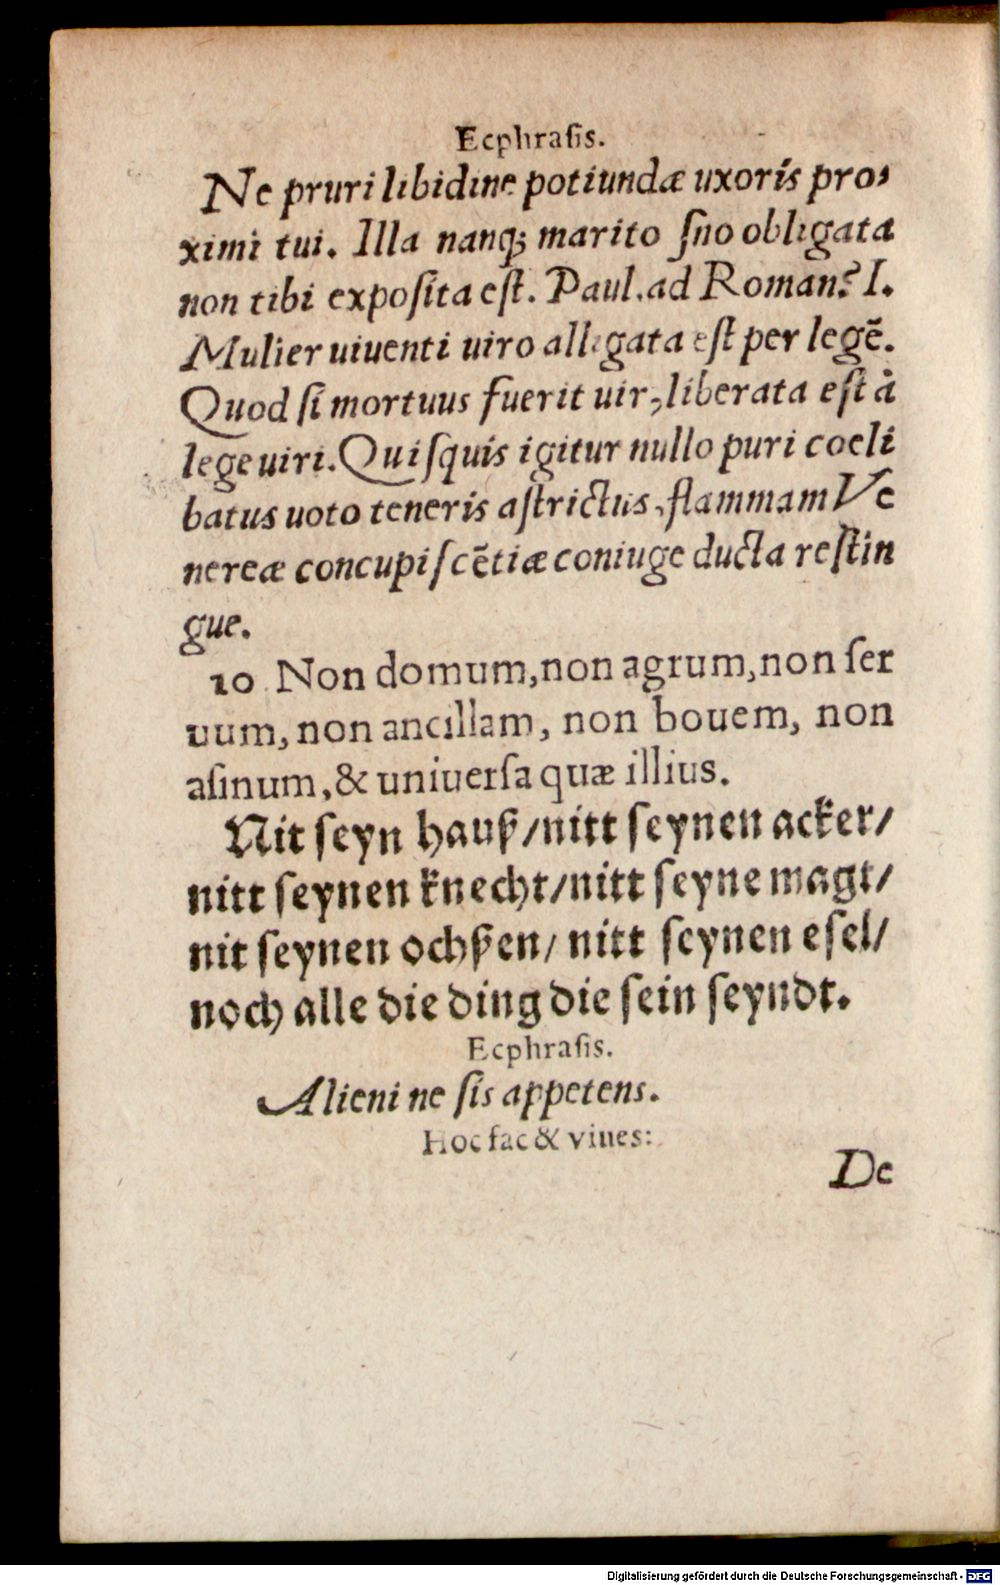 Ecphraſis.
Ne pruri libidine potiundæ uxoris pro⸗
ximi tui. Illa nanq; marito ſno obligata
non tibi expoſita eſt. Paul. ad Roman? I.
Mulier uiuenti uiro alligata eſt per legē.
Quod ſi mortuus fuerit uir, liberata eſt à
lege uiri. Quiſquis igitur nullo puri coeli
batus uoto teneris aſtrictus, flammam Ve
nereæ concupiſcētiæ coniuge ducta reſtin
gue.
10 Non domum, non agrum, non ſer
uum, non ancillam, non bouem, non
aſinum, & uniuerſa quæ illius.
Nit ſeyn hauß/nitt ſeynen acker/
nitt ſeynen knecht/nitt ſeyne magt/
nit ſeynen ochßen/ nitt ſeynen eſel/
noch alle die ding die ſein ſeyndt.
Ecphraſis.
Alieni ne ſis appetens.
Hoc fac & viues:
De
Digitalisierung gefördert durch die Deutsche Forschungsgemeinschaft - DFG